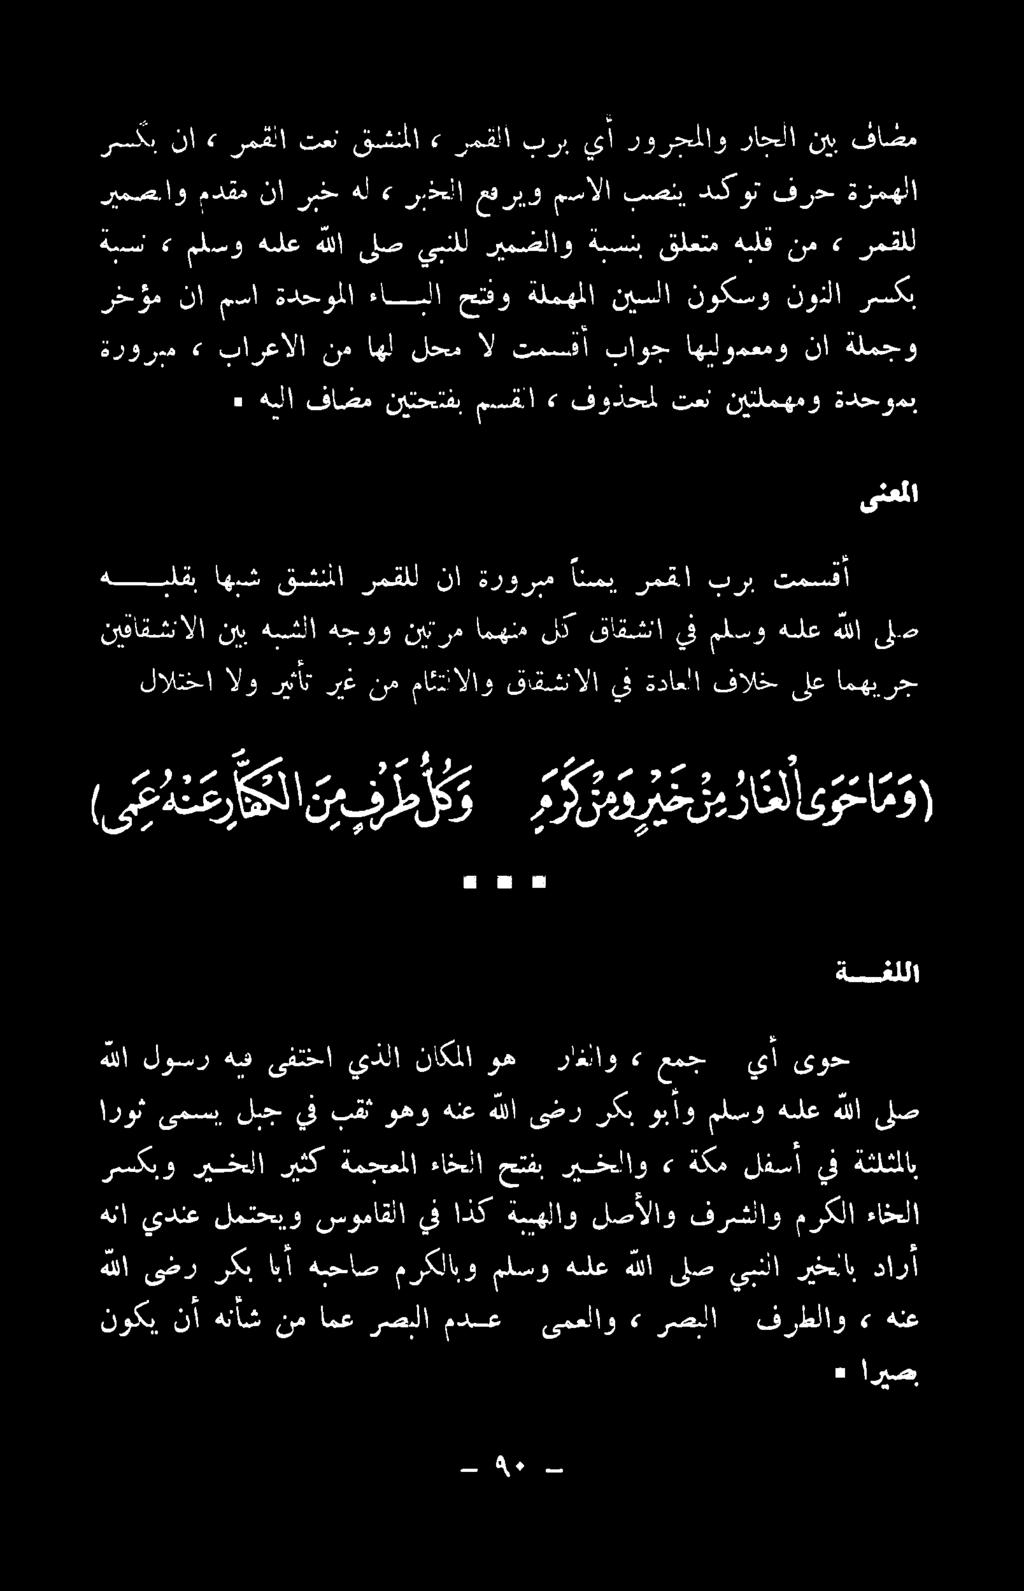 مضاف بين الجار والمجرور أي برب القمر ، المنشق نعت القمر ، ان بكسر
الهمزة حرف توكيد ينصب الاسم ويرفع الخبر ، له خبر ان مقدم والضمير
للقمر ، من قلبه متعلق بنسبة والضمير للنبي صلى الله عليه وسلم ، نسبة
بكسر النون وسكون السين المهملة وفتح البـــاء الموحدة اسم ان مؤخر
وجملة ان ومعموليها جواب أقسمت لا محل لها من الاعراب ، مبرورة
بموحدة ومهملتين نعت لمحذوف ، القسم بفتحتين مضاف اليه ▪
المعنى
أقسمت برب القمر يميناً مبرورة ان للقمر المنشق شبها بقلبـــه
صلى الله عليه وسلم في انشقاق كل منهما مرتين ووجه الشبه بين الانشقاقين
جريهما على خلاف العادة في الانشقاق والالتئام من غير تأثير ولا اختلال
(وَمَاحَوَى الْغَارُ مِنْ خَيْرٍ وَمِنْ كَرَمٍ وَكُلُّ طَرْفٍ مِنَ الْكُفَّارِ عَنْهُ عَمِى)
▪ ▪ ▪
اللغـــة
حوى أي جمع ، والغار هو المكان الذي اختفى فيه رسول الله
صلى الله عليه وسلم وأبو بكر رضى الله عنه وهو ثقب في جبل يسمى ثورا
بالمثلثة في أسفل مكة ، والخـير بفتح الخاء المعجمة كثير الخـير وبكسر
الخاء الكرم والشرف والأصل والهيبة كذا في القاموس ويحتمل عندي انه
أراد بالخير النبي صلى الله عليه وسلم وبالكرم صاحبه أبا بكر رضى الله
عنه ، والطرف البصر ، والعمى عـدم البصر عما من شأنه أن يكون
بصيرا ▪
– ٩٠ –